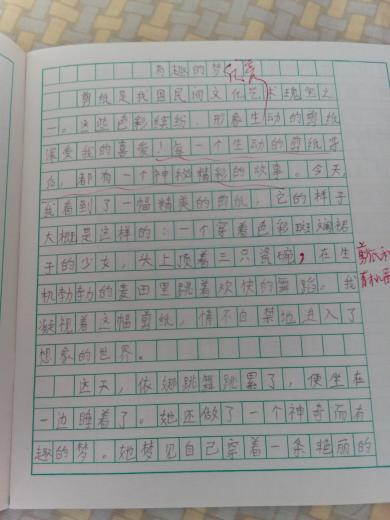 有趣的梦
剪纸是我国民间文化艺术瑰宝之
一。这些色彩缤纷、形象生动的剪纸
深受我的喜爱！每一个生动的剪纸背
后，都有一个神秘精彩的故事。今天，
我看到了一幅精美的剪纸，它的样子
大概是这样的：一个穿着色彩斑斓裙
子的少女，头上顶着三只瓷碗，在生
机勃勃的麦田里跳着欢快的舞蹈。我
凝视着这幅剪纸，情不自禁地进入了
想象的世界。
这天，依娜跳舞跳累了，便坐在
一边睡着了。她还做了一个神奇而有
趣的梦。她梦见自己穿着一条艳丽的